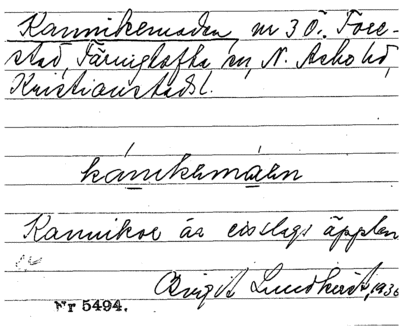 Kannikemaden, m 3 Ö. Fore-
stad, Färingtofta sn, N. Åsbo hd,
Kristianstads l.
kánikemáen
Kannikor är ett slags äpplen
Birgit Lundkvist, 1930
Nr 5494.